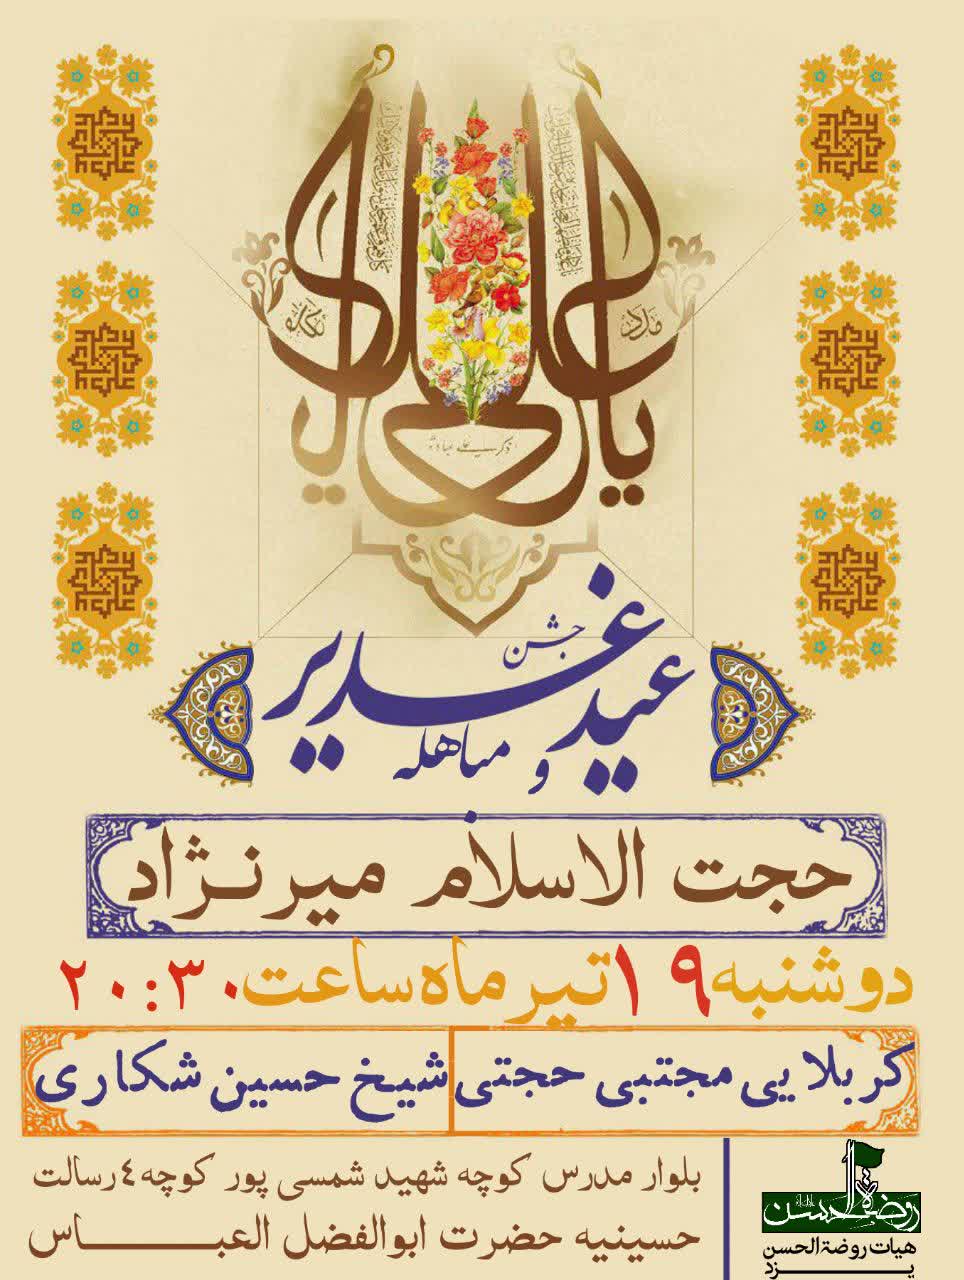 یا علی
مدد
ذکر علی عبادة
جشن
عید غدیر
و مباهله
حجت الاسلام میرنژاد
دوشنبه ۱۹ تیر ماه ساعت ۲۰:۳۰
کربلایی مجتبی حجتی شیخ حسین شکاری
بلوار مدرس کوچه شهید شمسی پور کوچه ٤ رسالت
حسینیه حضرت ابوالفضل العباس
روضة الحسن
هیات روضة الحسن
یزد